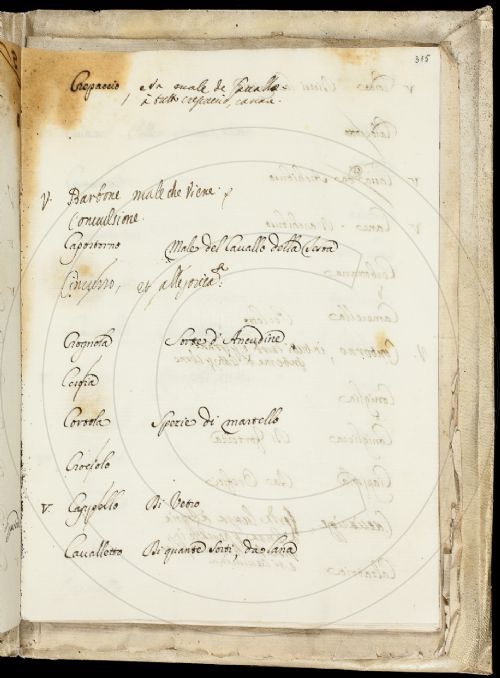 315
Crepaccio, è un male de Cavallo
a tutto crepaccio, canna.
V. Barbone male che viene p
Convulsione.
Capostorno Male del Cavallo della Testa
Cimurro, et allegorica.te
Crognola Sorte d'Ancudine
Ceppa
Corsola Spezie di martello
Crociolo
V. Cappello Di Vetro
Cavalletto Di quante sorti, da Lana